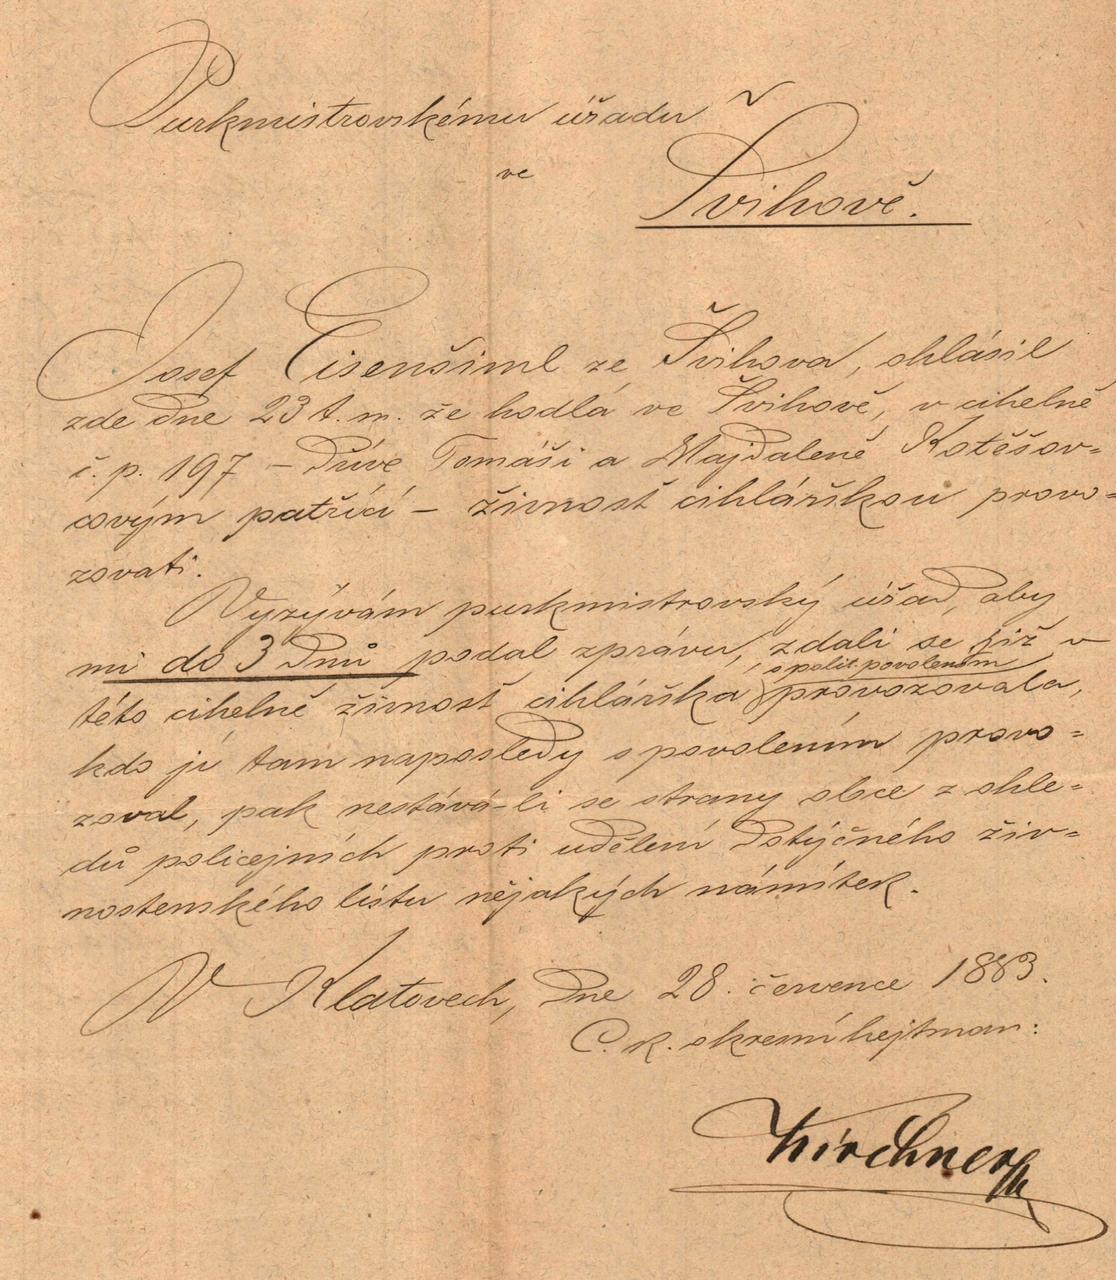 Purkmistrovskému úřadu
ve
Švihově.
Josef Eisenšiml ze Švihova, ohlásil
zde dne 23 t. m. že hodlá ve Švihově, v cihelně
č. p. 197 – dříve Tomáši a Majdaleně Kotěšov-
covým patřící – živnosť cihlářskou provo-
zovati.
Vyzývám purkmistrovský úřad, aby
mi do 3 dnů podal zprávu, zdali se již v
s polit. povolením
této cihelně živnosť cihlářská provozovala,
kdo ji tam naposledy s povolením provo-
zoval, pak nestává-li se strany obce z ohle-
dů policejních proti udělení dotýčného živ-
nostenského listu nějakých námitek.
V Klatovech, dne 28. července 1883.
C. k. okresní hejtman:
Kirchner